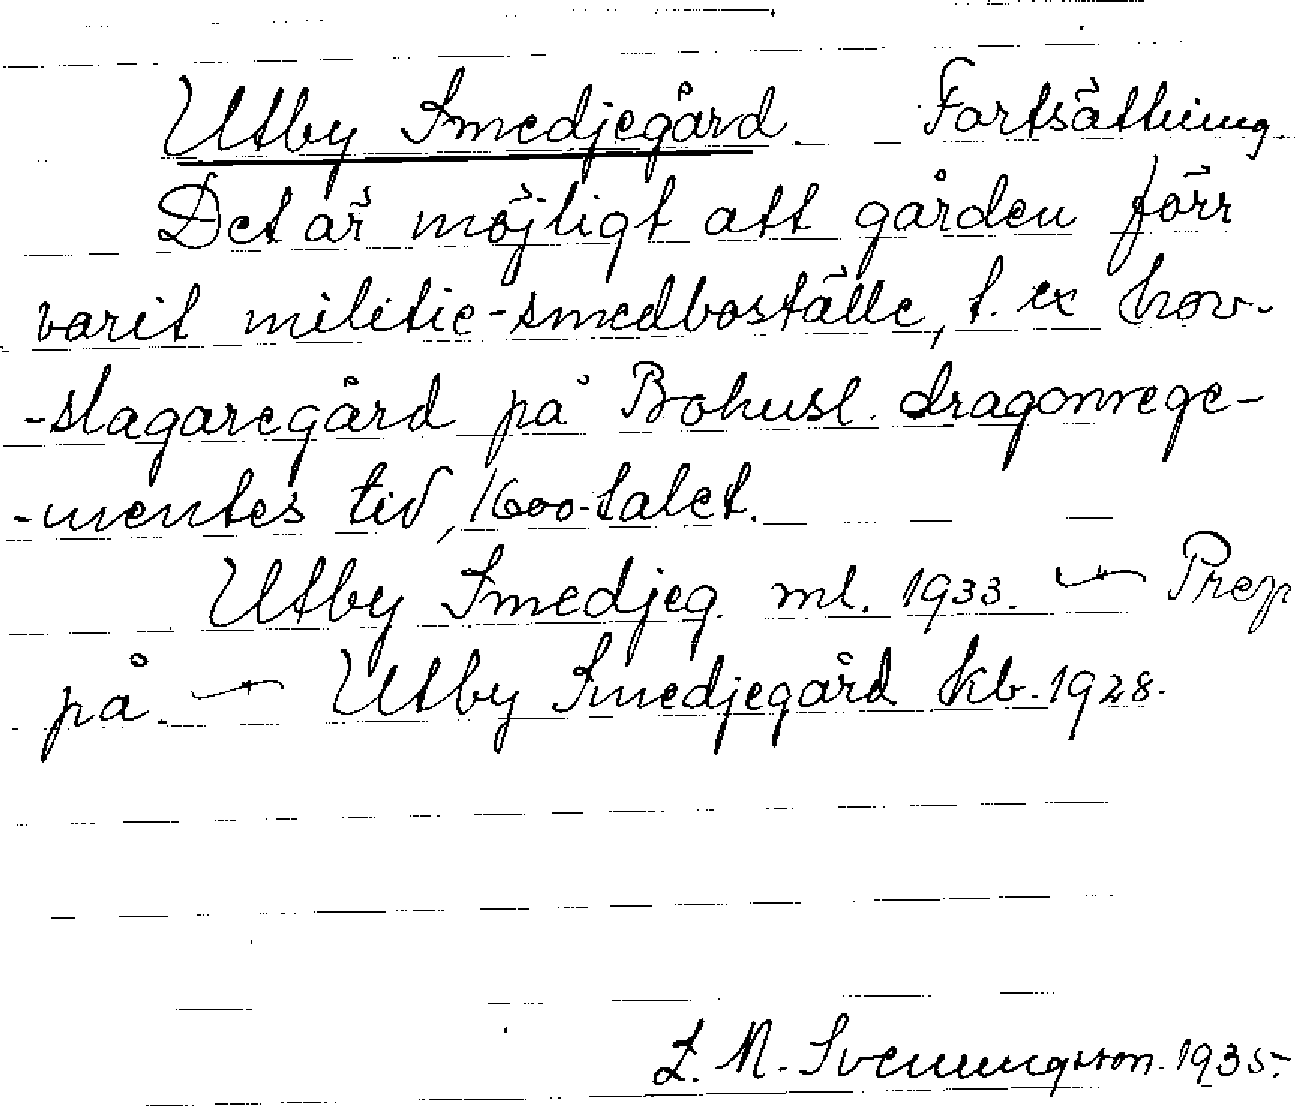 Utby Smedjegård Fortsättning
Det är möjligt att gården förr
varit militie-smedboställe, t. ex hov-
-slagaregård på Bohusl. dragonrege-
-mentes tid, 1600-talet.
Utby Smedjeg. ml. 1933. — Prep
på. — Utby Smedjegård kb. 1928.
L. M. Svenungsson. 1935.